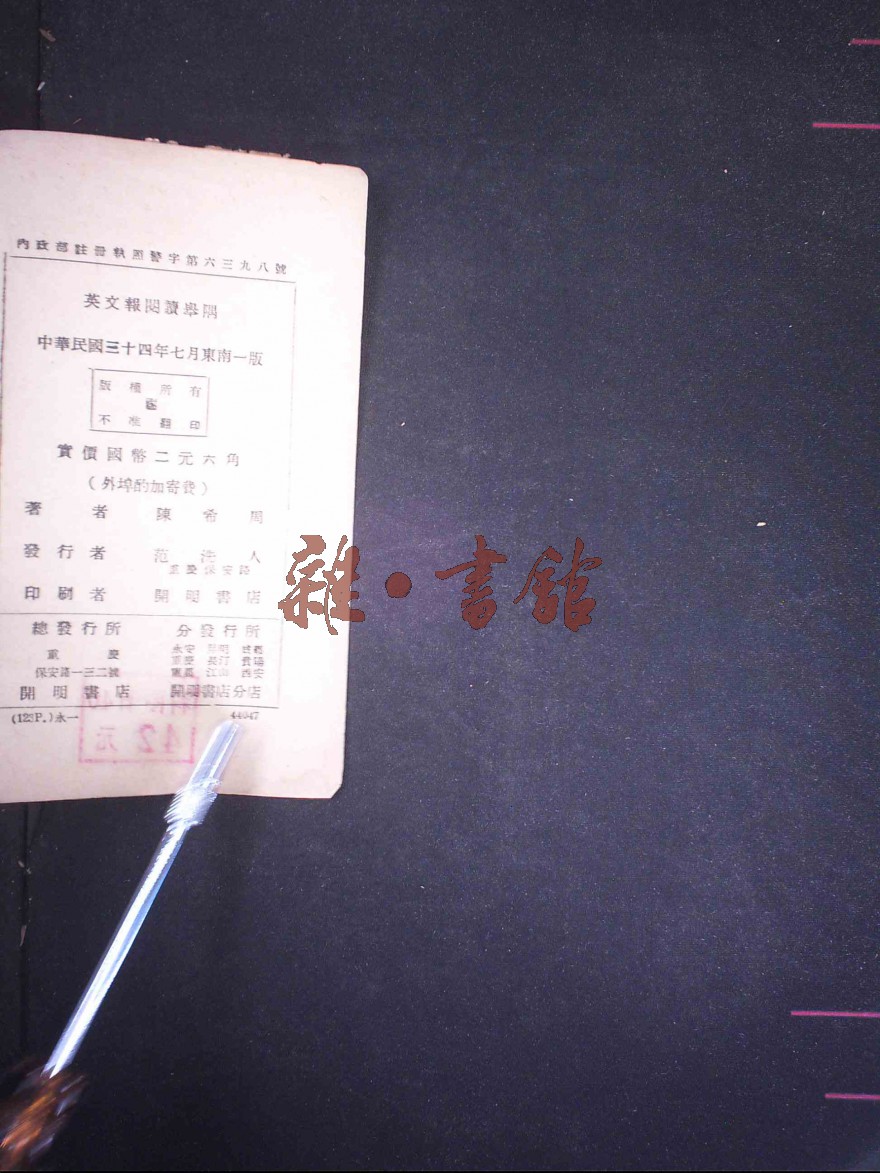 內政部註冊執照警字第六三九八號
英文報閱讀舉隅
中華民國三十四年七月東南一版
版權所有
不准翻印
實價國幣二元六角
(外埠酌加寄費)
著者 陳希周
發行者 范洗人
重慶保安路
印刷者 開明書店
總發行所 分發行所
重慶
永安 昆明 成都
重慶 長汀 貴陽
江山 西安
保安路一三二號
開明書店 開明書店分店
(123P.)永一 44047
42元
雜·書館